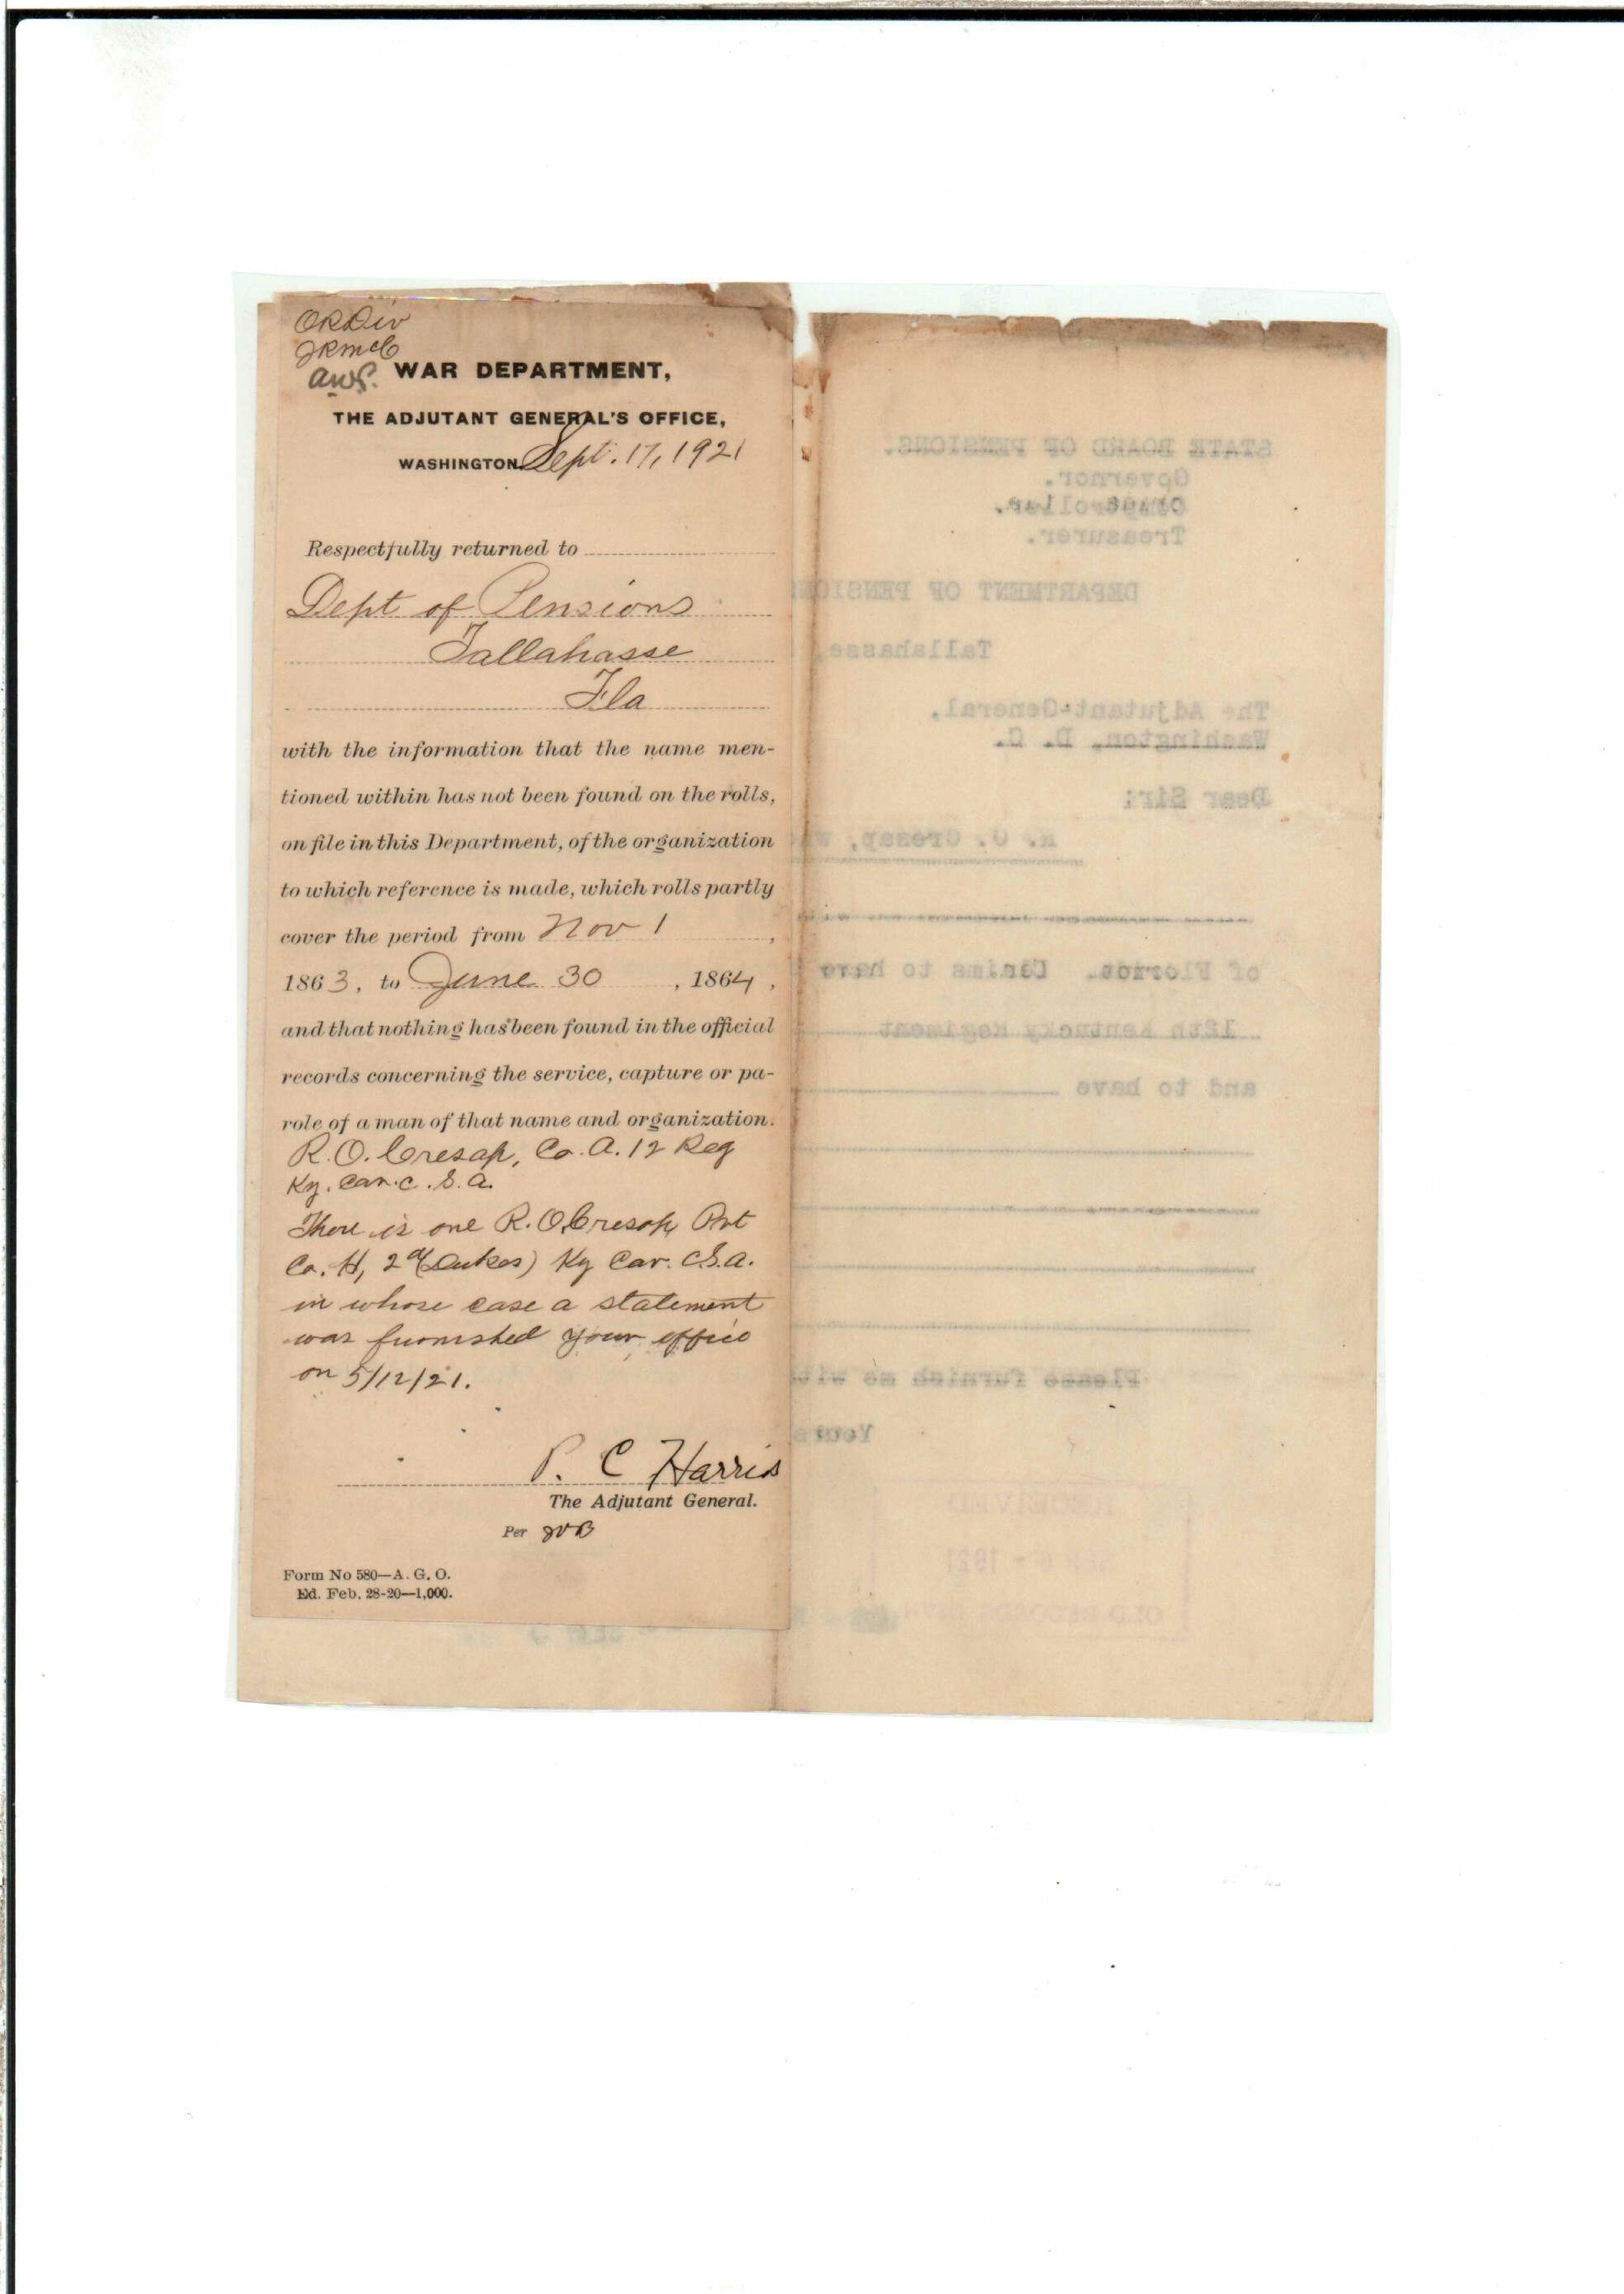 ORDiv
JRMcC
WAR DEPARTMENT,
THE ADJUTANT GENERAL'S OFFICE,
WASHINGTON, Sept. 17, 1921
Respectfully returned to
Dept of Pensions
Tallahasse
Fla
with the information that the name men-
tioned within has not been found on the rolls,
on file in this Department, of the organization
to which reference is made, which rolls partly
cover the period from Nov 1,
1863, to June 30, 1864,
and that nothing has been found in the official
records concerning the service, capture or pa-
role of a man of that name and organization.
R. O. Cresap, Co. A. 12 Reg
Ky. Cav. C. S. A.
There is one R. O. Cresap, Pvt
Co. H, 2d (Dukes) Ky Cav. C.S.A.
in whose case a statement
was furnished your office
on 5/12/21.
P. C Harris
The Adjutant General.
Per JVB
Form No 580—A. G. O.
Ed. Feb. 28-20—1,000.
STATE BOARD OF PENSIONS.
Governor.
Treasurer.
DEPARTMENT OF PENSION
Tallahasse,
The Adjutant-General,
Washington, D. C.
Dear Sir:
R. O. Cresap,
of Florida. Claims to have
12th Kentucky Regiment
and to have
Please furnish me wit
Yours